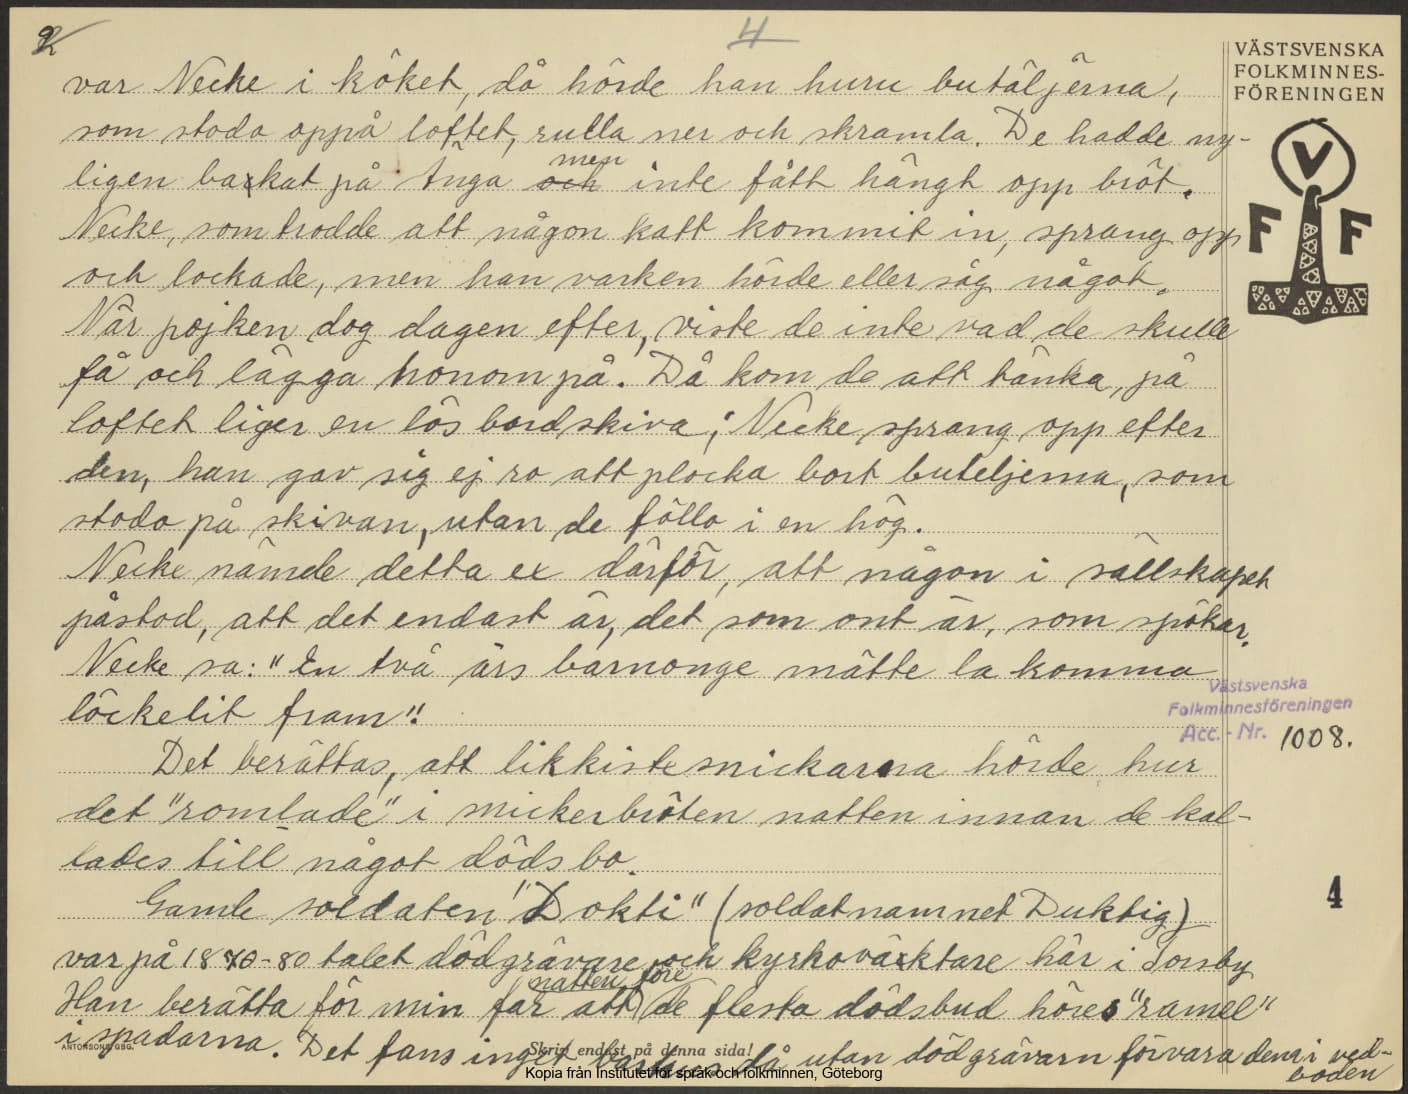 4
VÄSTSVENSKA
FOLKMINNES-
FÖRENINGEN
V
F F
var Necke i köket, då hörde han huru butäljerna,
som stodo oppå loftet, rulla ner och skramla. De hadde ny-
ligen bakat på Anga och men inte fått hängt opp bröt.
Necke, som trodde att någon katt kommit in, sprang opp
och lockade, men han varken hörde eller såg något.
När pojken dog dagen efter, viste de inte vad de skulle
få och lägga honom på. Då kom de att tänka, på
loftet liger en lös bordskiva; Necke sprang opp efter
den, han gav sig ej ro att plocka bort buteljerna, som
stodo på skivan, utan de föllo i en hög.
Necke nämde detta ex därför, att någon i sällskapet
påstod, att det endast är, det som ont är, som spökar.
Necke sa: "En två års barnonge måtte la komma
löckelit fram".
Västsvenska
Folkminnesföreningen
Acc.-Nr. 1008.
Det berättas, att likkistesnickarna hörde hur
det "romlade" i snickerbröten natten innan de kal-
lades till något dödsbo.
Gamle soldaten "Dokti" (soldatnamnet Duktig)
4
var på 1870-80 talet dödgrävare och kyrkoväktare här i Torsby
Han berätta för min far att natten före de flesta dödsbud höres "ramel"
i spadarna. Det fans inget då utan dödgrävarn förvara dem i ved-
boden
ANTONSONS, GBG.
Skriv endast på denna sida!
Kopia från Institutet för språk och folkminnen, Göteborg